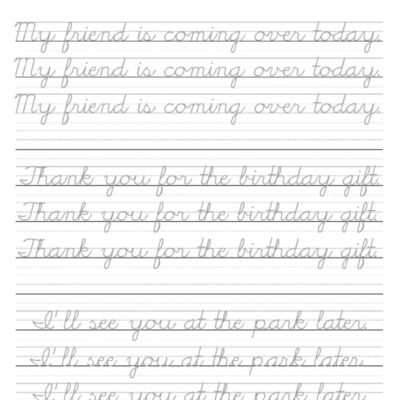 My friend is coming over today.
My friend is coming over today.
My friend is coming over today.
Thank you for the birthday gift.
Thank you for the birthday gift.
Thank you for the birthday gift.
I'll see you at the park later.
I'll see you at the park later.
I'll see you at the park later.